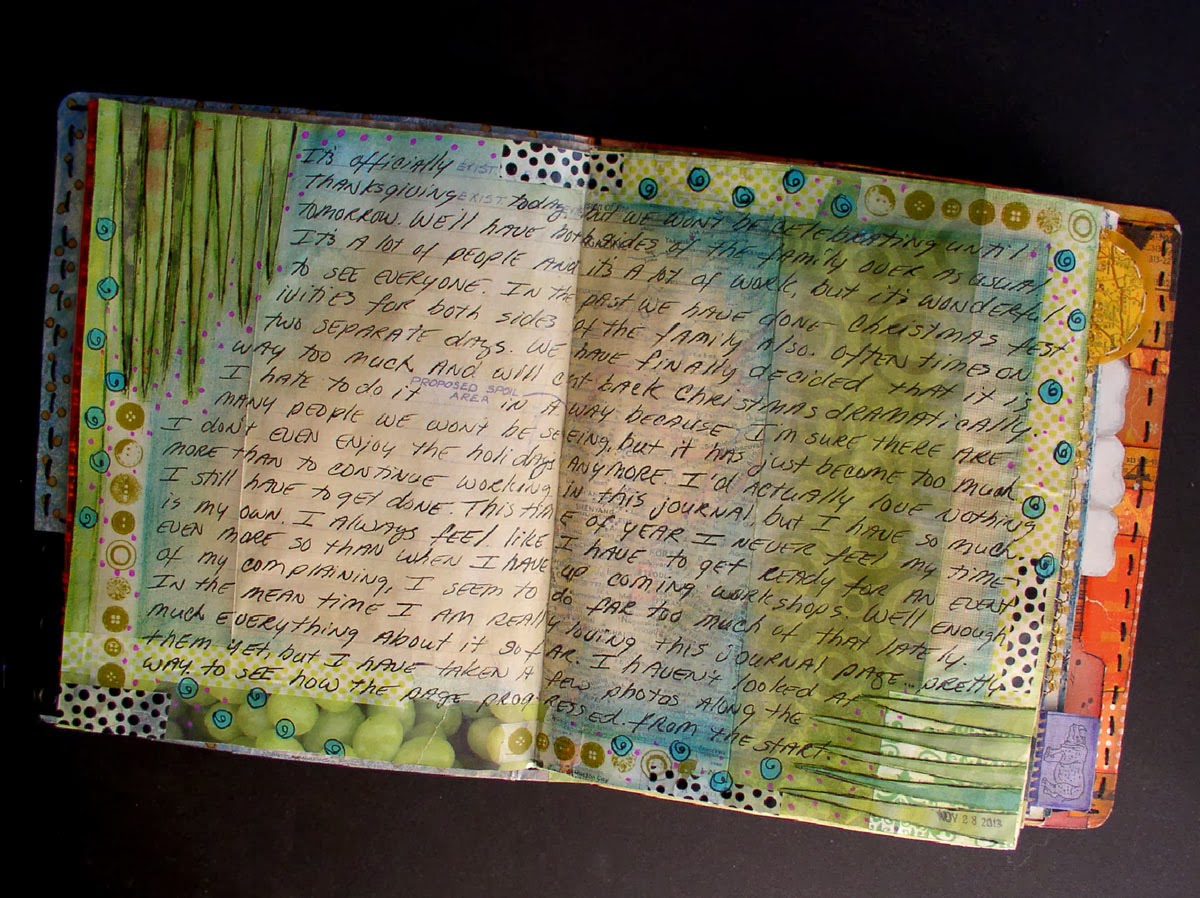 It's officially EXIST.
Thanksgiving EXIST. today but we wont be celebrating until
tomorrow. We'll have both sides of the family over as usual.
It's a lot of people and it's a lot of work, but it's wonderful
to see everyone. In the past we have done Christmas fest
ivities for both sides of the family also. Often times on
two separate days. We have finally decided that it is
way too much and will cut back Christmas dramatically.
I hate to do it PROPOSED SPOIL AREA in a way because I'm sure there are
many people we wont be seeing, but it has just become too much.
I don't even enjoy the holidays anymore. I'd actually love nothing
more than to continue working in this journal, but I have so much
I still have to get done. This time of year I never feel my time-
is my own. I always feel like I have to get ready for an event
even more so than when I have up coming workshops. Well enough
of my complaining, I seem to do far too much of that lately.
In the mean time I am really loving this journal page...pretty
much everything about it so far. I haven't looked at
them yet but I have taken a few photos along the
way to see how the page progressed. from the start.
NOV 28 2013